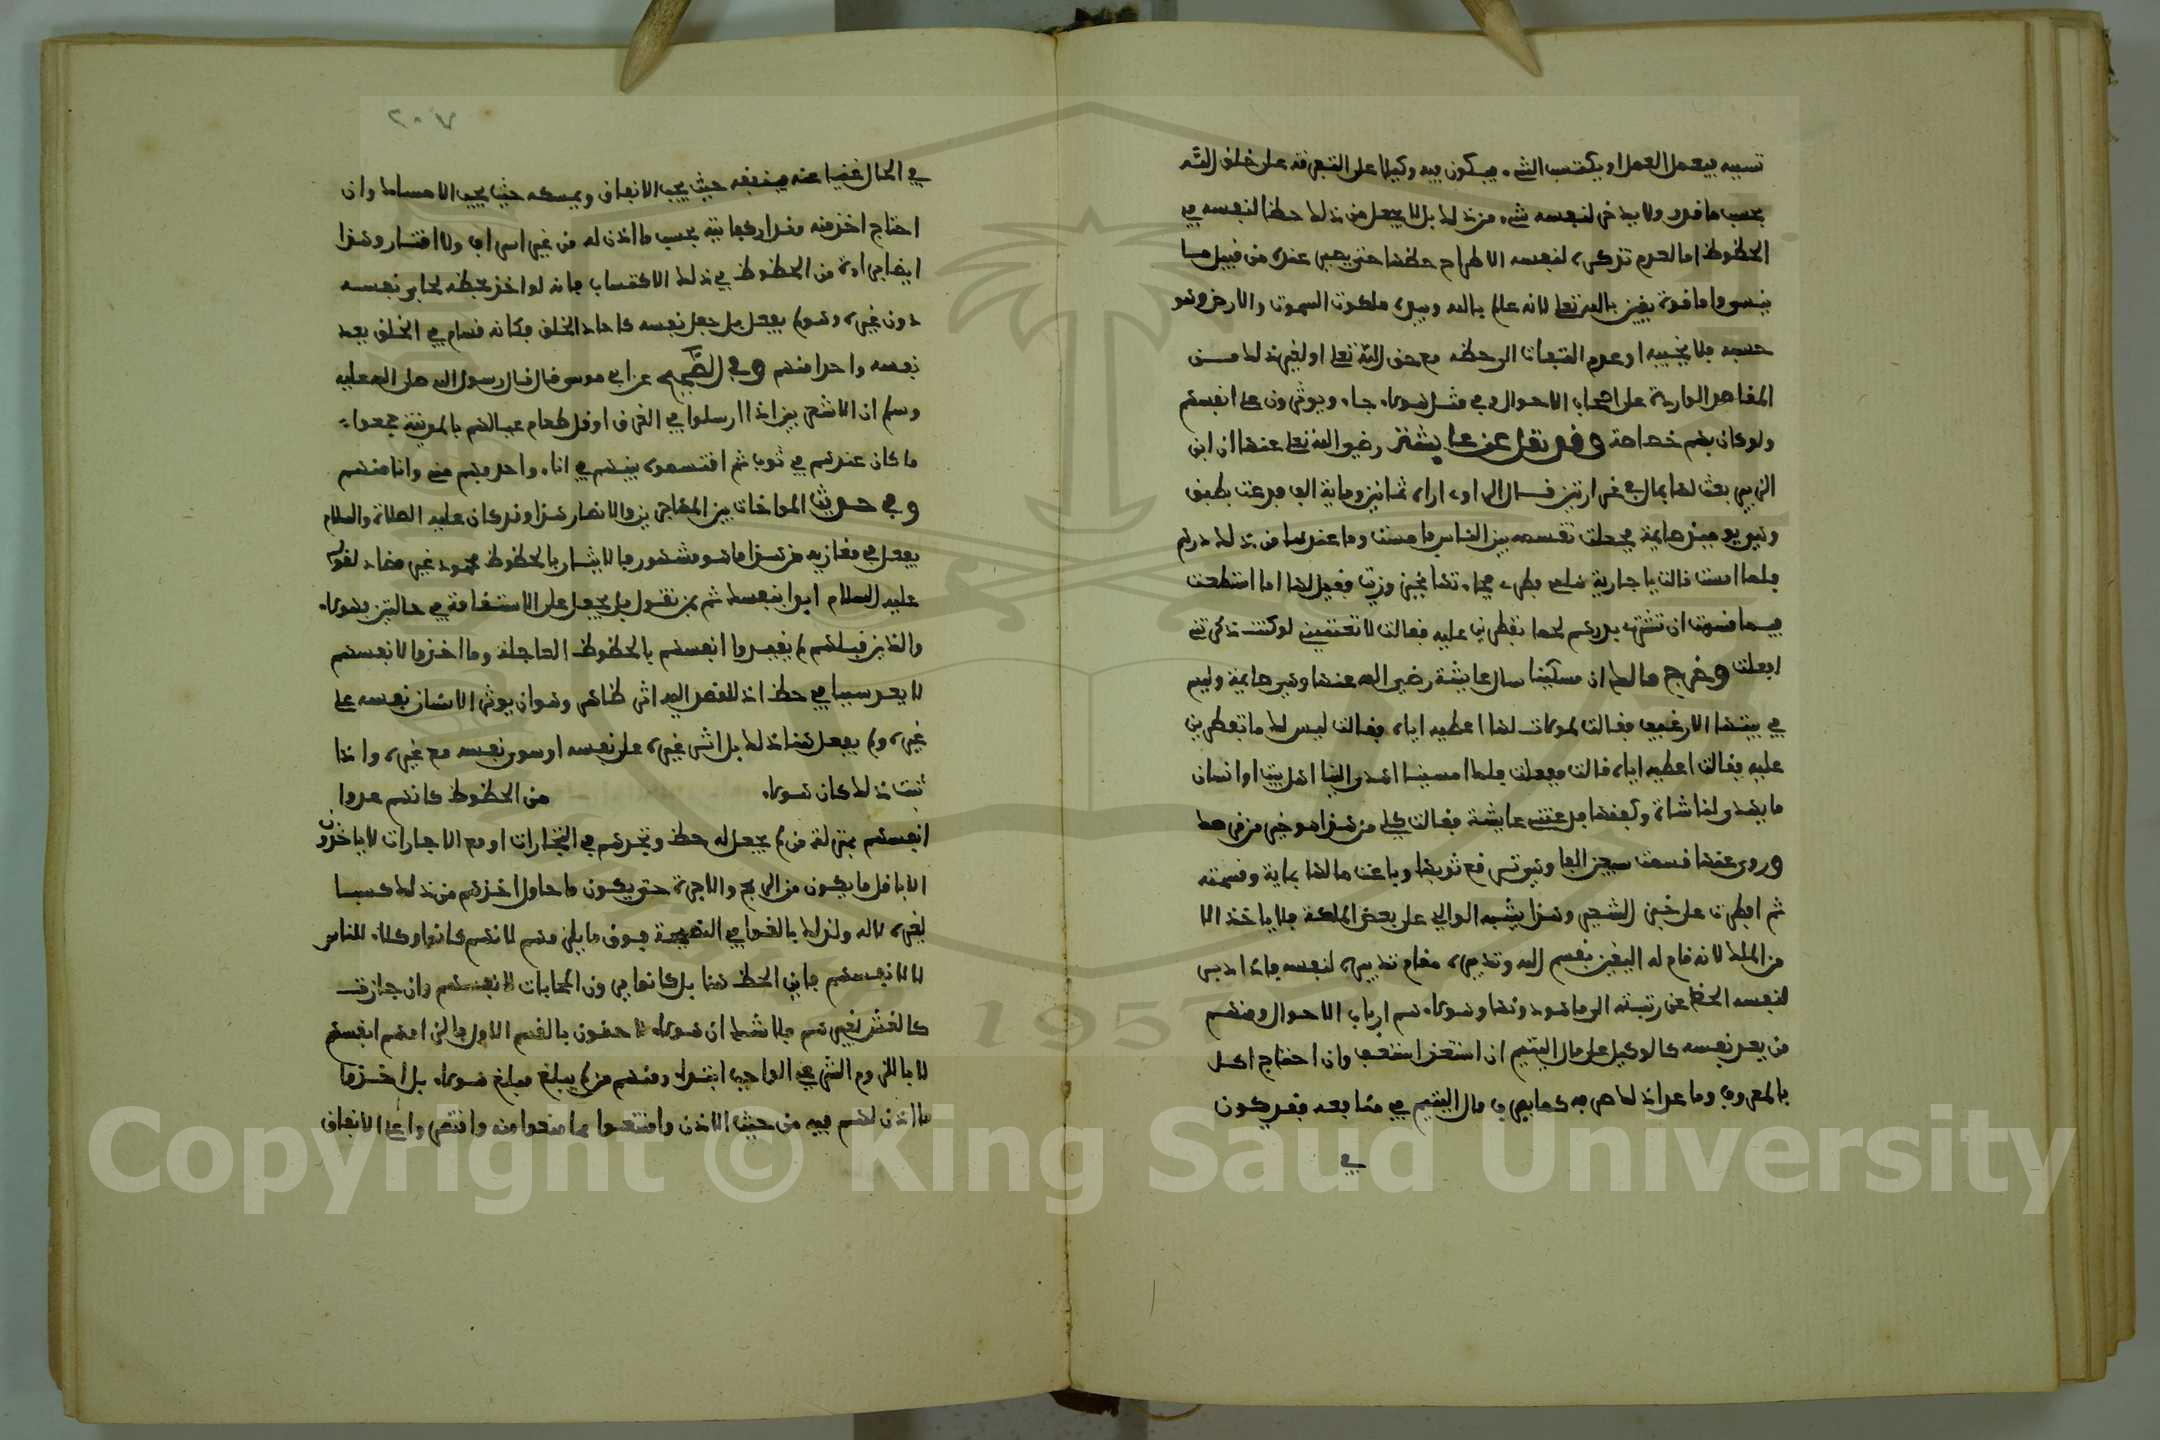 تسببه بيعمل العمل او يكتسب الشيء فيكون فيه وكيلا على التفرقة على خلق الله
بحسب ما قدر ولا يدخر لنفسه شيء من ذلك بل لا يجعل من ذلك حظا لنفسه من
الحظوظ اما لعدم تذكره لنفسه لاطراح حظها حتى يصير عنده من قبيل ما
ينسى واما قوة يقين بالله تعلى لانه عالم بالله وبيده ملكوت السموت والارض وهو
حسبه فلا يخيبه او عدم التفات الى حظه مع حق الله تعلى او لغير ذلك من
المقاصد الواردة على اصحاب الاحوال وفي مثل هؤلاء جاء ويوثرون على انفسهم
ولو كان بهم خصاصة وقد نقل عن عايشة رضي الله تعلى عنها ان ابن
الزبير بعث لها بمال في غرارتين قال الراوي اراه ثمانين وماية الف فدعت بطبق
وهي يوميذ صايمة فجعلت تقسمه بين الناس فامست وما عندها من ذلك درهم
فلما امست قالت يا جارية هلمي فطري فجاءتها بخبز وزيت فقيل لها اما استطعت
فيما قسمت ان تشتري بدرهم لحما نفطر عليه فقالت لا تعنفيني لو كنت ذكرتني
لفعلت وخرج مالك ان مسكينا سال عايشة رضي الله عنها وهي صايمة وليس
في بيتها الا رغيف فقالت لمولاة لها اعطيه اياه فقالت ليس لك ما تفطرين
عليه فقالت اعطيه اياه قالت ففعلت فلما امسينا اهدى الينا اهل بيت او انسان
ما يهدي لنا شاة وكفنها فدعتني عايشة فقالت كلي من هذا هو خير من قرصك
وروي عنها قسمت سبعين الفا وهي ترقع ثوبها وباعت مالها بماية وقسمته
ثم افطرت على خبز الشعير وهذا يشبه الوالي على بعض المملكة فلا ياخذ الا
من الملك لانه قام له اليقين بقسم الله وتدبيره مقام تدبيره لنفسه فاذا دبر
لنفسه انحط عن رتبته الى ما هو دونها وهؤلاء هم ارباب الاحوال ومنهم
من يعد نفسه كالوكيل على مال اليتيم ان استغنى استعف وان احتاج اكل
بالمعروف وما عدا ذلك صرفه كما يصرف مال اليتيم في منافعه فقد يكون
في
٢٠٧
في الحال غنيا عنه فينفقه حيث يجب الانفاق ويمسكه حيث يجب الامساك وان
احتاج اخذ منه مقدار كفايته بحسب ما اذن له من غير اسراف ولا اقتار وهذا
ايضا براءة من الحظوظ في ذلك الاكتساب فانه لو اخذ بحظه لحابى نفسه
دون غيره وهو لم يفعل بل جعل نفسه كآحاد الخلق فكانه قسام في الخلق يعد
نفسه واحدا منهم وفي الصحيح عن ابي موسى قال قال رسول الله صلى الله عليه
وسلم ان الاشعريين اذا ارملوا في الغزو او قل طعام عيالهم بالمدينة جمعوا
ما كان عندهم في ثوب ثم اقتسموه بينهم في اناء واحد فهم مني وانا منهم
وفي حديث المواخات بين المهاجرين والانصار هذا وقد كان عليه الصلاة والسلام
يفعل في مغازيه من هذا ما هو مشهور فالايثار بالحظوظ محمود غير مضاد لقوله
عليه السلام ابدا بنفسك ثم بمن تعول بل يحمل على الاستقامة في حالتين فهؤلاء
والذين قبلهم لم يقيدوا انفسهم بالحظوظ العاجلة وما اخذوا لانفسهم
لا يعد سعيا في حظ اذ للقصد اليه اثر ظاهر وهو ان يوثر الانسان نفسه على
غيره ولم يفعل هنا ذلك بل اثر غيره على نفسه او سوى نفسه مع غيره واذا
ثبت ذلك كان هؤلاء من الحظوظ كانهم عدوا
انفسهم بمنزلة من لم يجعل له حظ وتجدهم في التجارات او مع الاجارات لا ياخذون
الا باقل ما يكون من الربح والاجرة حتى يكون ما حاول احدهم من ذلك كسبا
لغيره لا له ولذلك بالغوا في النصيحة فوق ما يلزمهم لانهم كانوا وكلاء للناس
لا لانفسهم فاين الحظ هنا بل كانوا يرون المحابات لانفسهم وان جازت
كالغش لغيرهم فلا شك ان هؤلاء لاحقون بالقسم الاول فالزامهم انفسهم
لا باللزوم الشرعي الواجب ابتداء ومنهم من لم يبلغ مبلغ هؤلاء بل اخذوا
ما اذن لهم فيه من حيث الاذن وامتنعوا مما منعوا منه واقتصروا على الانفاق
Copyright © King Saud University
1957